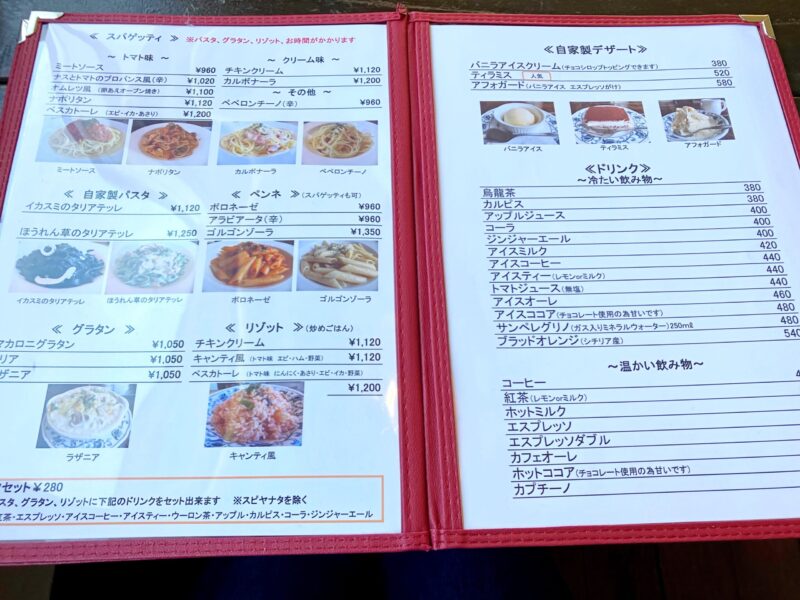 ≪ スパゲッティ ≫ ※パスタ、グラタン、リゾット、お時間がかかります
～ トマト味 ～
ミートソース ¥960
ナスとトマトのプロバンス風(辛) ¥1,020
オムレツ風 (卵あえオーブン焼き) ¥1,100
ナポリタン ¥1,120
ペスカトーレ (エビ・イカ・あさり) ¥1,200
～ クリーム味 ～
チキンクリーム ¥1,120
カルボナーラ ¥1,200
～ その他 ～
ペペロンチーノ(辛) ¥960
ミートソース
ナポリタン
カルボナーラ
ペペロンチーノ
≪ 自家製パスタ ≫
イカスミのタリアテッレ ¥1,120
ほうれん草のタリアテッレ ¥1,250
イカスミのタリアテッレ
ほうれん草のタリアテッレ
≪ ペンネ ≫ (スパゲッティも可)
ボロネーゼ ¥960
アラビアータ(辛) ¥960
ゴルゴンゾーラ ¥1,350
ボロネーゼ
ゴルゴンゾーラ
≪ グラタン ≫
マカロニグラタン ¥1,050
リア ¥1,050
ザニア ¥1,050
ラザニア
≪ リゾット ≫ (炒めごはん)
チキンクリーム ¥1,120
キャンティ風 (トマト味 エビ・ハム・野菜) ¥1,120
ペスカトーレ (トマト味 にんにく・あさり・エビ・イカ・野菜)
¥1,200
キャンティ風
セット¥280
スタ、グラタン、リゾットに下記のドリンクをセット出来ます ※スピヤナタを除く
紅茶・エスプレッソ・アイスコーヒー・アイスティー・ウーロン茶・アップル・カルピス・コーラ・ジンジャーエール
≪自家製デザート≫
バニラアイスクリーム(チョコシロップトッピングできます) 380
ティラミス 人気 520
アフォガード(バニラアイス エスプレッソがけ) 580
バニラアイス
ティラミス
アフォガード
≪ドリンク≫
～冷たい飲み物～
烏龍茶 380
カルピス 380
アップルジュース 400
コーラ 400
ジンジャーエール 400
アイスミルク 420
アイスコーヒー 440
アイスティー(レモンorミルク) 440
トマトジュース(無塩) 440
アイスオーレ 460
アイスココア(チョコレート使用の為甘いです) 480
サンペレグリノ(ガス入りミネラルウォーター)250ml 480
ブラッドオレンジ(シチリア産) 540
～温かい飲み物～
コーヒー
紅茶(レモンorミルク)
ホットミルク
エスプレッソ
エスプレッソダブル
カフェオーレ
ホットココア(チョコレート使用の為甘いです)
カプチーノ